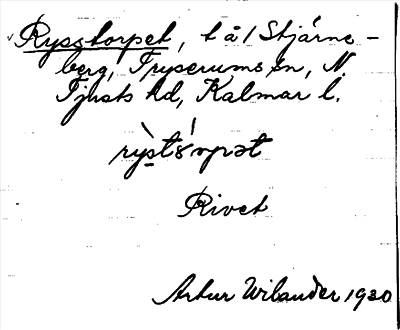 Rysstorpet, t å/Stjärne-
berg, Tryserums sn, N.
Tjusts hd, Kalmar l.
Rivet
Artur Wilander 1930